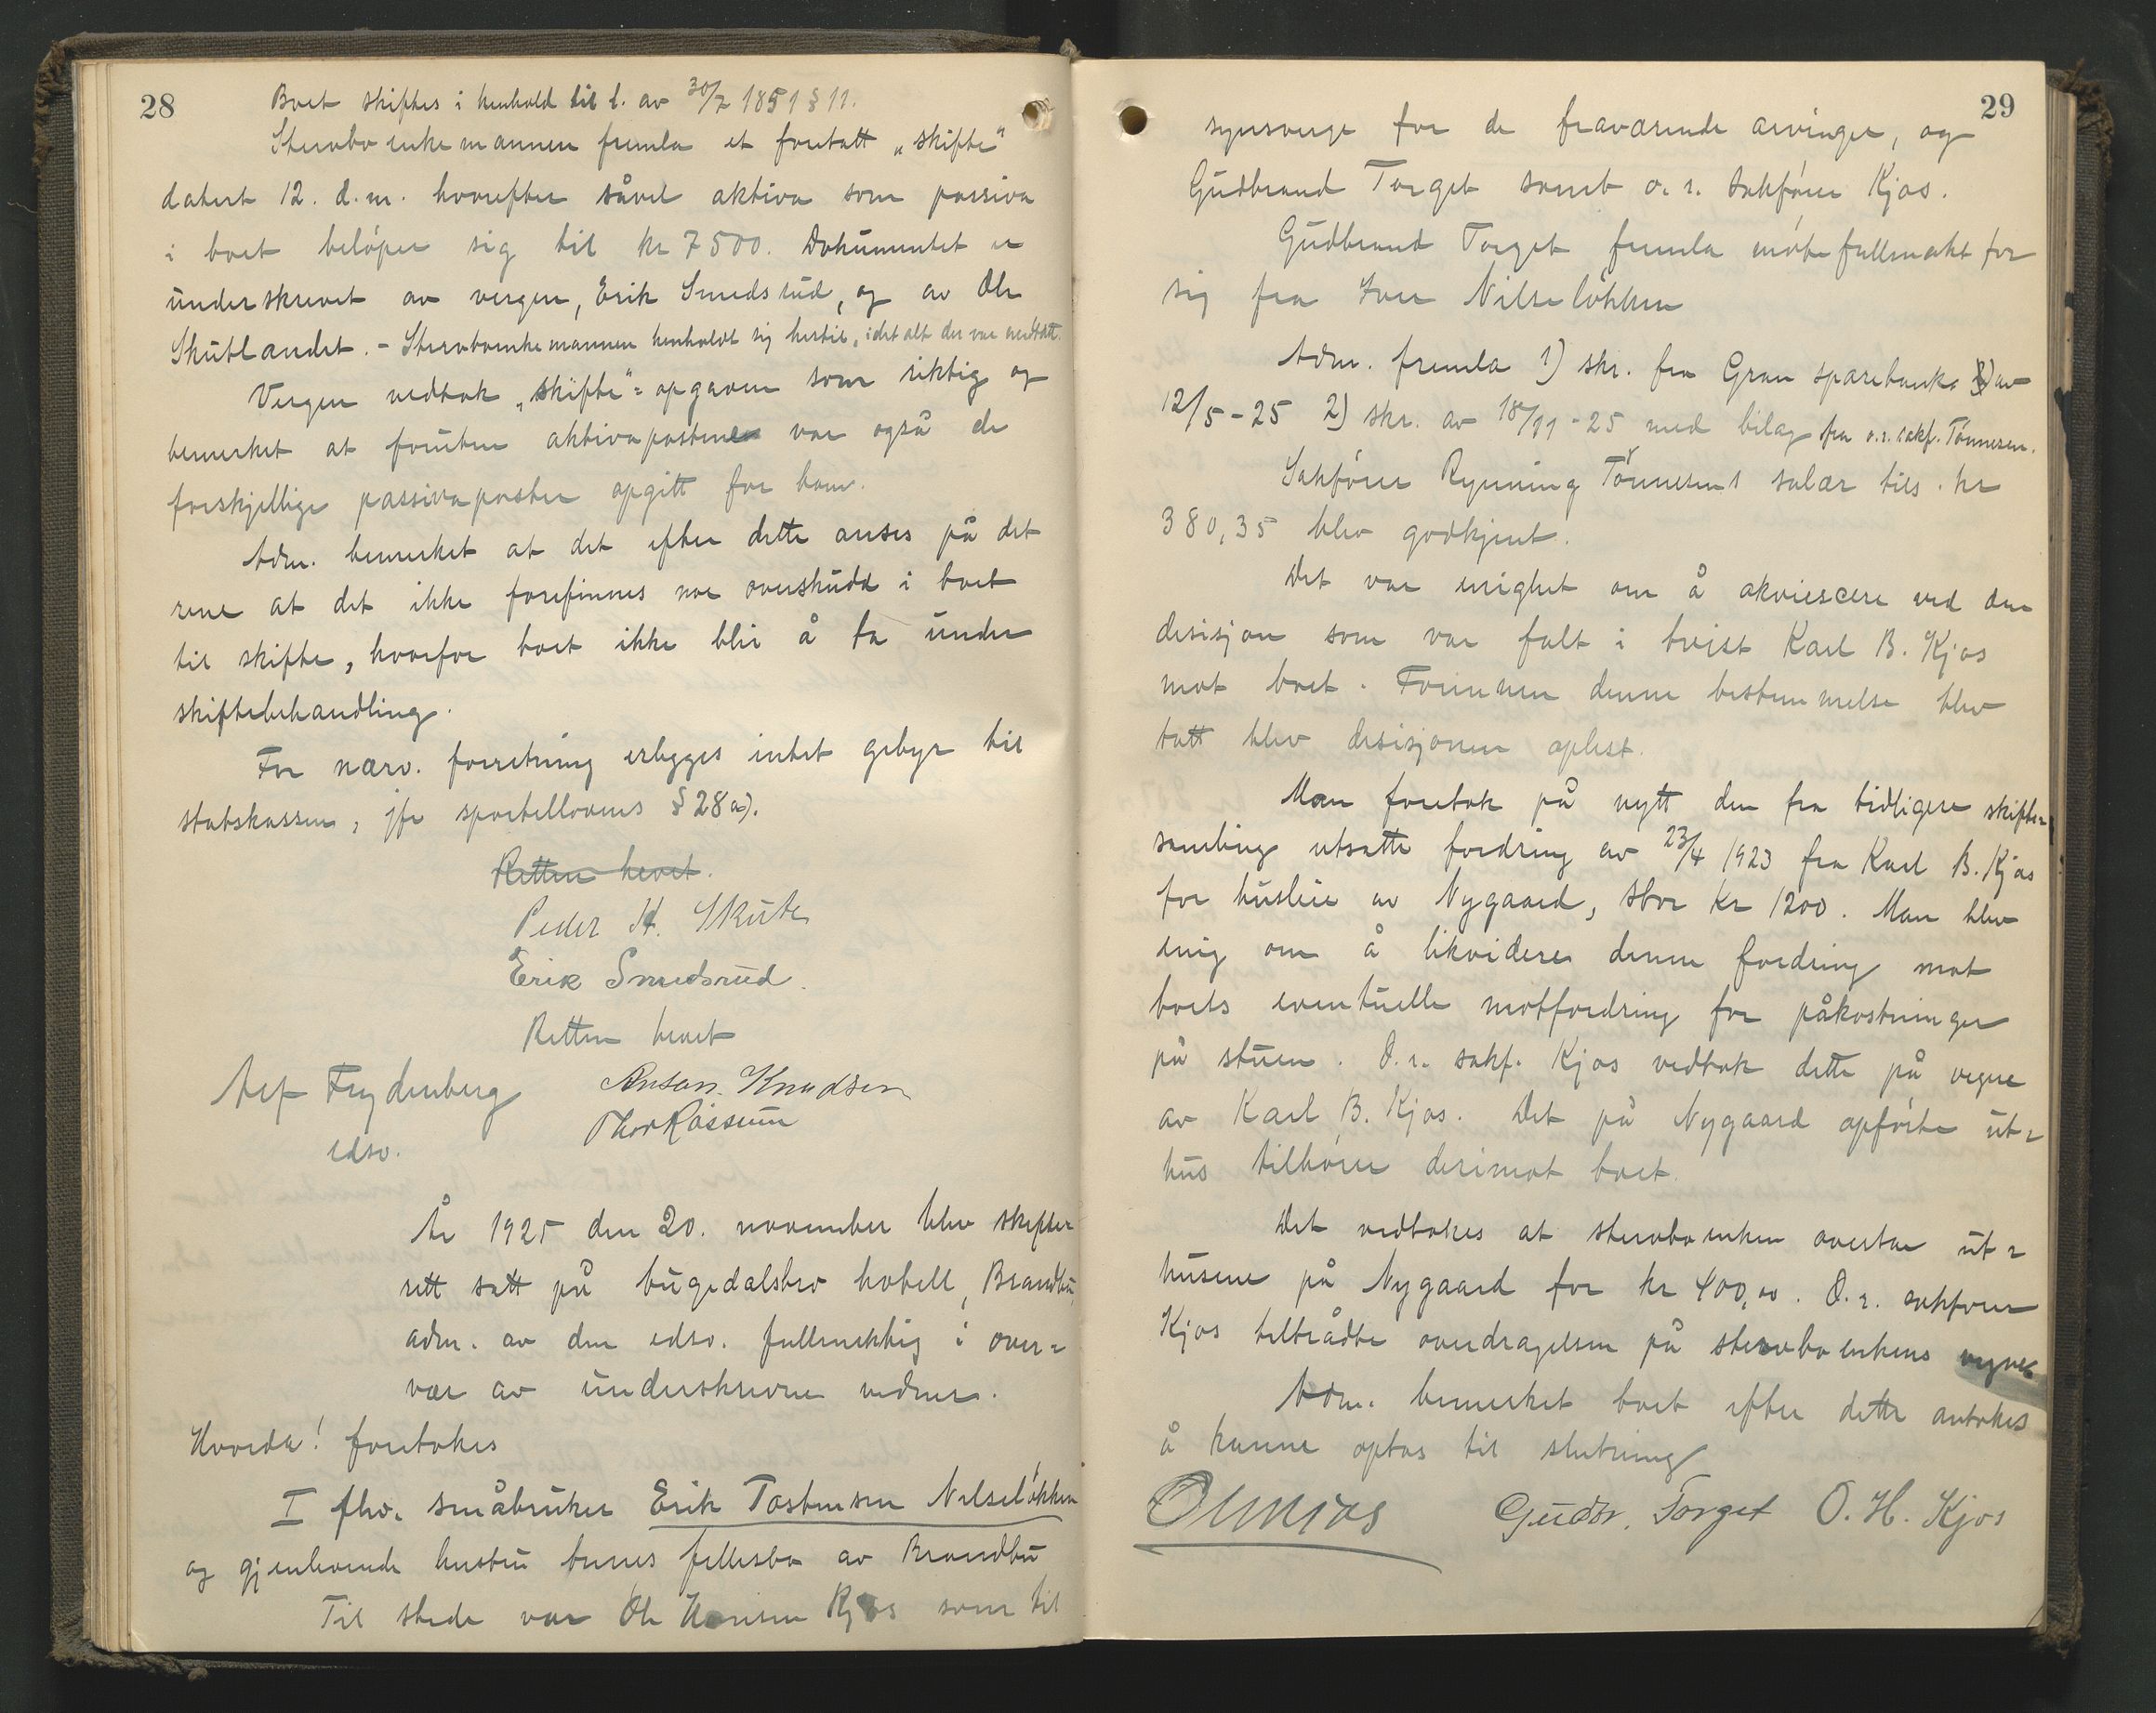 28
Boet skiftes i henhold til l. av 30/7 1851 § 11.
Stervboenkemannen fremla et foretatt „skifte"
datert 12. d.m. hvorefter såvel aktiva som passiva
i boet beløper sig til kr 7500. Dokumentet er
underskrevet av vergen, Erik Smedsrud, og av Ole
Skutlandet. - Stervboenkemannen henholdt sig hertil, idet alt der var medtatt.
Vergen vedtok „skifte"-opgaven som riktig og
bemerket at foruten aktivapostene var også de
forskjellige passivaposter opgitt for ham.
Adm. bemerket at det efter dette anses på det
rene at det ikke forefinnes noe overskudd i boet
til skifte, hvorfor boet ikke blir å ta under
skiftebehandling.
For nærv. forretning erlegges intet gebyr til
statskassen, jfr sportellovens § 28 a).
Retten hevet.
Peder H. Skute
Erik Smedsrud.
Retten hevet
Alf Frydenberg Anton Knudsen
edsv. Thor Røssum
År 1925 den 20. november blev skifte-
rett satt på Augedalsbro hotell, Brandbu,
adm. av den edsv. fullmektig i over-
vær av underskrevne vidner.
Hvorda! foretokes
I fhv. småbruker Erik Tostensen Nilseløkken
og gjenlevende hustru Annes fellesbo av Brandbu
Til stede var Ole Hansen Kjos som til
29
synsverge for de fraværende arvinger, og
Gudbrand Torget samt o.r. sakfører Kjos.
Gudbrand Torget fremla møtefullmakt for
sig fra Iver Nilseløkken
Adm. fremla 1) skr. fra Gran sparebank av
12/5-25 2) skr. av 18/11-25 med bilag fra o.r.sakf. Tønnesen.
Sakfører Rynning Tønnesens salær tils. kr
380,35 blev godkjent.
Det var enighet om å akviescere ved den
desisjon som var falt i tvist Karl B. Kjos
mot boet. Forinnen denne bestemmelse blev
tatt blev desisjonen oplest.
Man foretok på nytt den fra tidligere skifte-
samling utsatte fordring av 23/4 1923 fra Karl B. Kjos
for husleie av Nygaard, stor kr 1200. Man blev
enig om å likvidere denne fordring mot
boets eventuelle motfordring for påkostninger
på stuen. O.r. sakf. Kjos vedtok dette på vegne
av Karl B. Kjos. Det på Nygaard opførte ut-
hus tilhører derimot boet.
Det vedtokes at stervboenken overtar ut-
husene på Nygaard for kr 400,00. O.r. sakfører
Kjos tiltrådte overdragelsen på stervboenkens vegne
Adm. bemerket boet efter dette antokes
å kunne optas til slutning
Gudbr. Torget O. H. Kjos